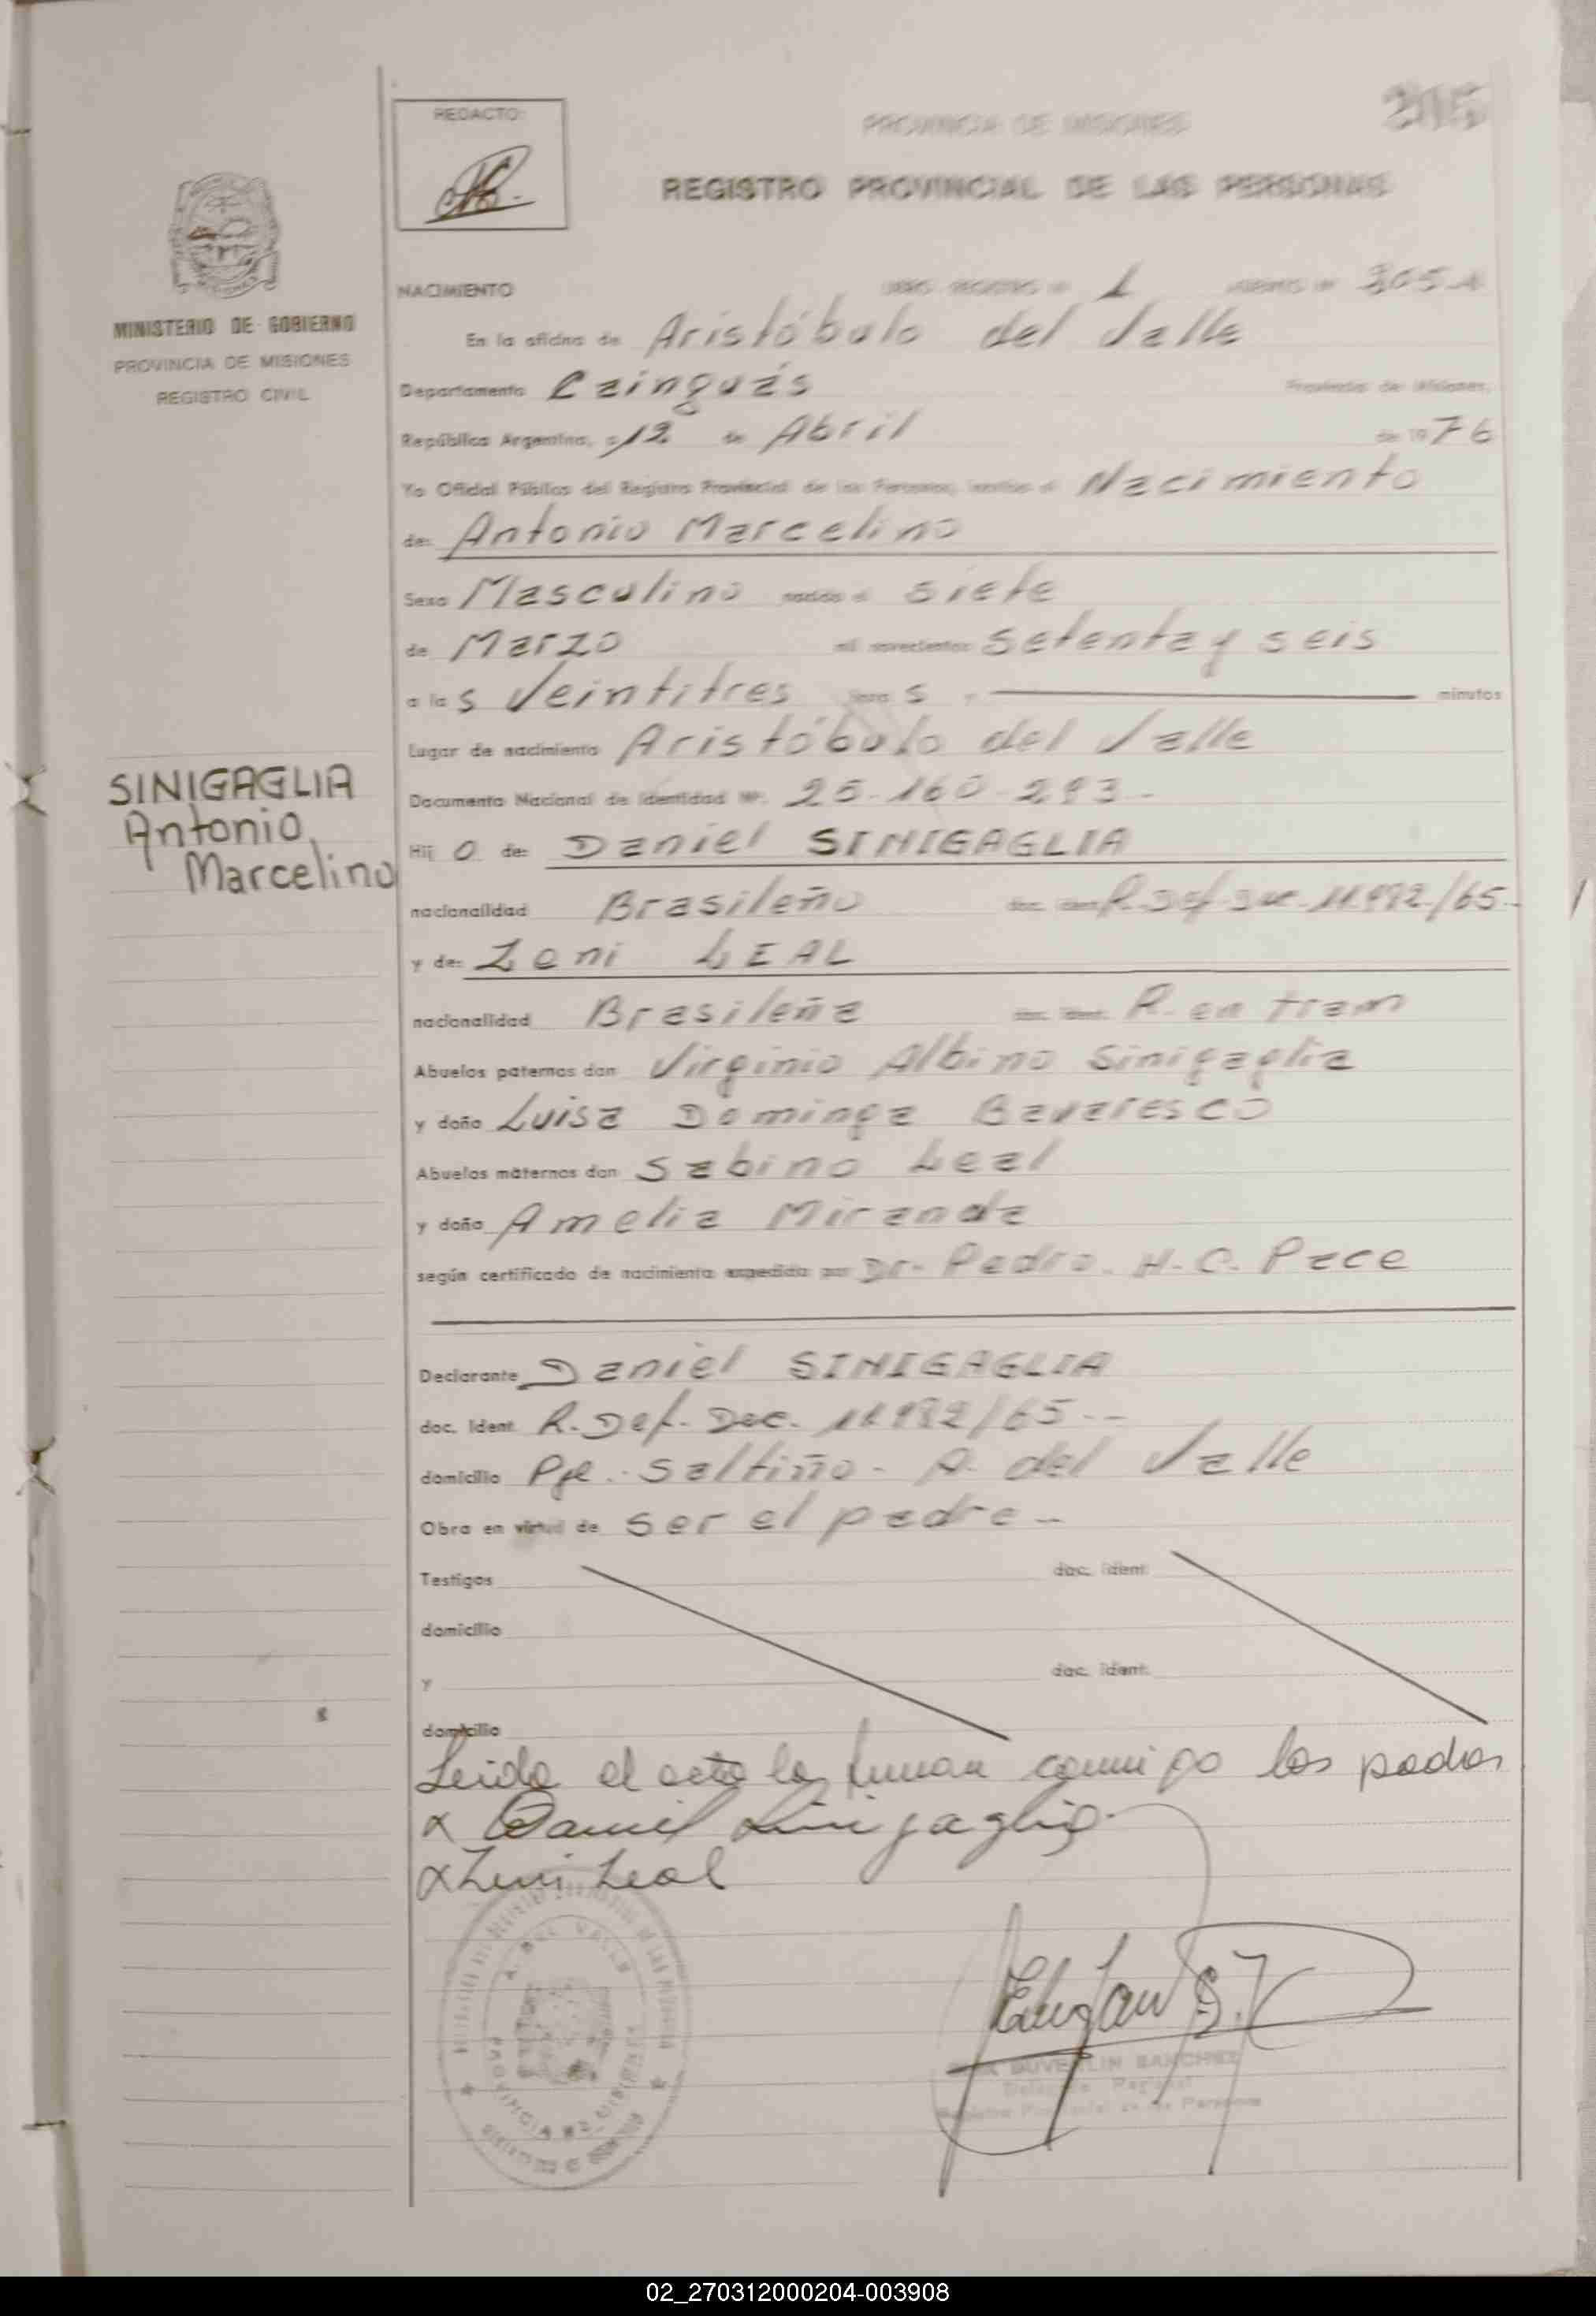 205
REDACTO:
PROVINCIA DE MISIONES
REGISTRO PROVINCIAL DE LAS PERSONAS
MINISTERIO DE GOBIERNO
PROVINCIA DE MISIONES
REGISTRO CIVIL
NACIMIENTO 1
En la oficina de Aristóbulo del Valle
Departamento Cainguás Provincia de Misiones,
República Argentina, a 12 de Abril de 1976
Yo Oficial Público del Registro Provincial de las Personas, Nacimiento
de: Antonio Marcelino
Sexo Masculino nacido el siete
de Marzo mil novecientos setenta y seis
a las Veintitres horas y minutos
Lugar de nacimiento Aristóbulo del Valle
Documento Nacional de Identidad Nº. 25.160.293.-
SINIGAGLIA
Antonio
Marcelino
Hijo de: Daniel SINIGAGLIA
nacionalidad Brasileño doc. ident. R. Def.
y de: Leni LEAL
nacionalidad Brasileña doc. ident. R. en tram
Abuelos paternos don Virginio Albino Sinigaglia
y doña Luisa Dominga Bavaresco
Abuelos maternos don Sabino Leal
y doña Amelia Miranda
según certificado de nacimiento expedido por Dr. Pedro. H. C. Pace
Declarante Daniel SINIGAGLIA
doc. Ident. R. Def. Dec.
domicilio Pje. Saltiño - A. del Valle
Obra en virtud de ser el padre -
Testigos doc. ident.
domicilio
y doc. ident.
domicilio
Leida el acta la firman conmigo los padres
x Daniel Sinigaglia
x Leni Leal
A. DEL VALLE
PROVINCIA DE MISIONES
SANCHEZ
Registro Provincial de las Personas
02_270312000204-003908